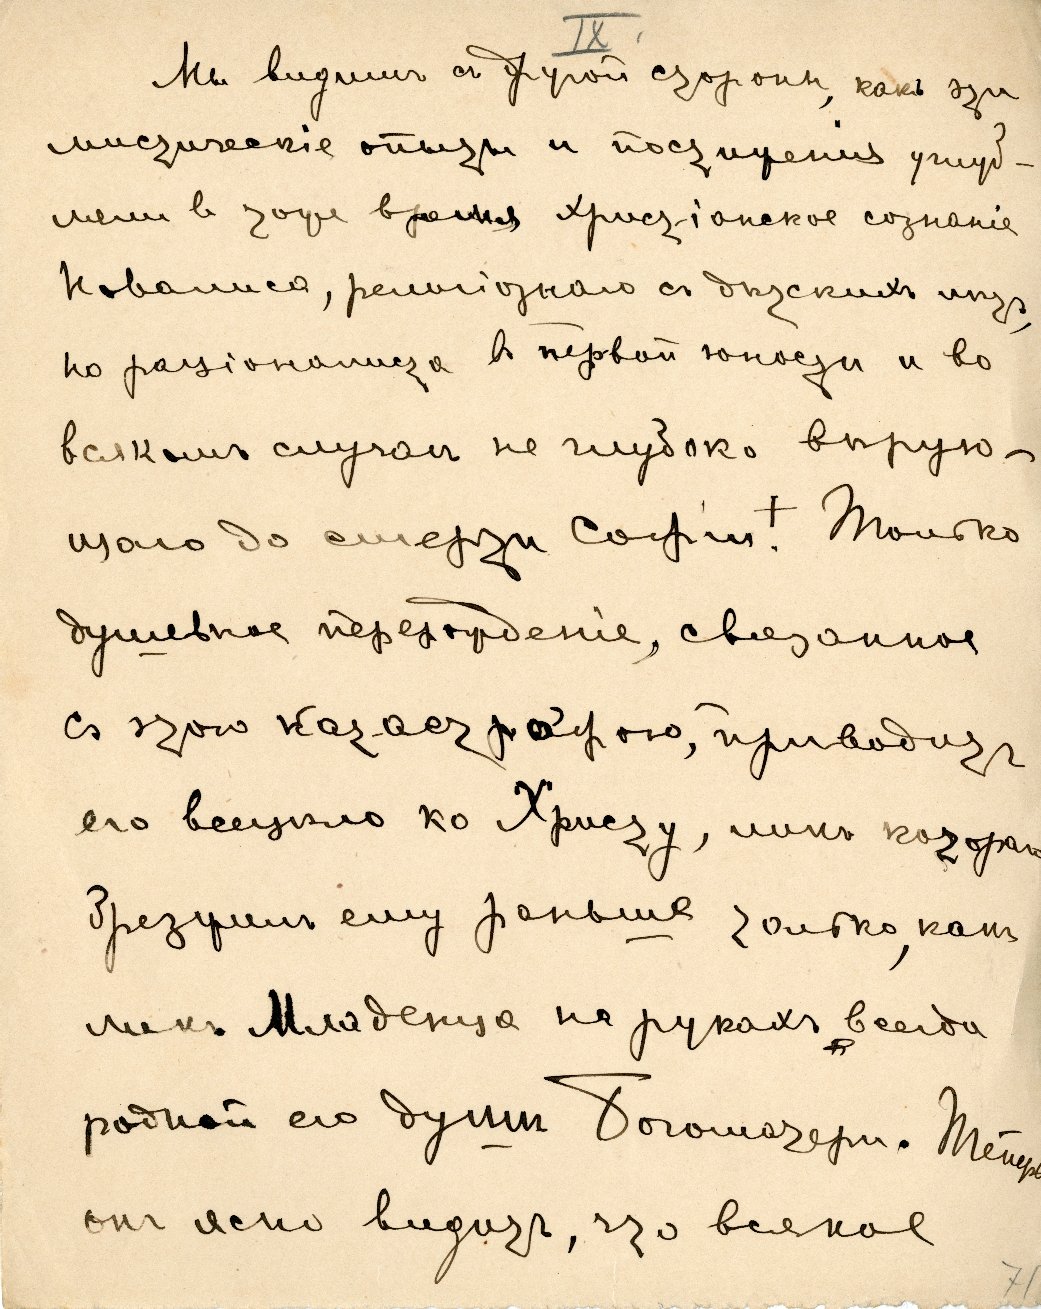 IX.
Мы видимъ съ другой стороны, какъ эти
мистическіе опыты и постиженія углуб-
ляли въ тоже время христіанское сознаніе
Новалиса, религіознаго съ дѣтскихъ лѣтъ,
но раціоналиста въ первой юности и во
всякомъ случаѣ не глубоко вѣрую-
щаго до смерти Софіи! Только
душевное перерожденіе, связанное
съ этою катастрофою, приводитъ
его всецѣло ко Христу, ликъ котораго
зрезушилъ ему раньше только, какъ
ликъ Младенца на рукахъ всегда
родной его души Богоматери. Теперь
онъ ясно видитъ, что всякое
71